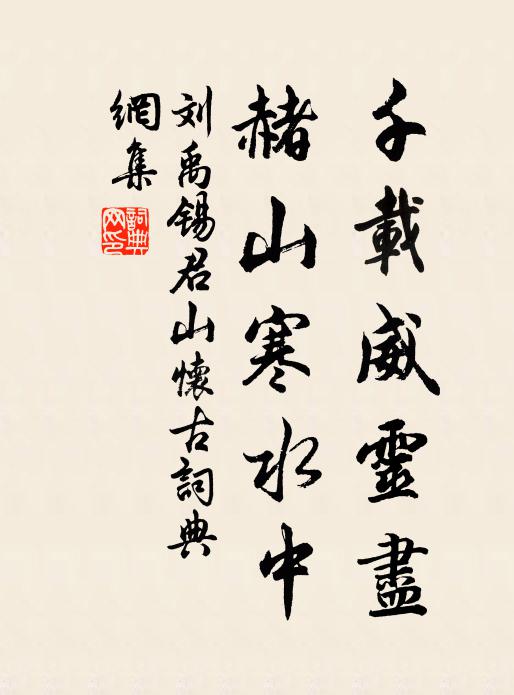 千載威靈盡
赭山寒水中
刘禹锡君山懷古詞典
網集
詞典
网印